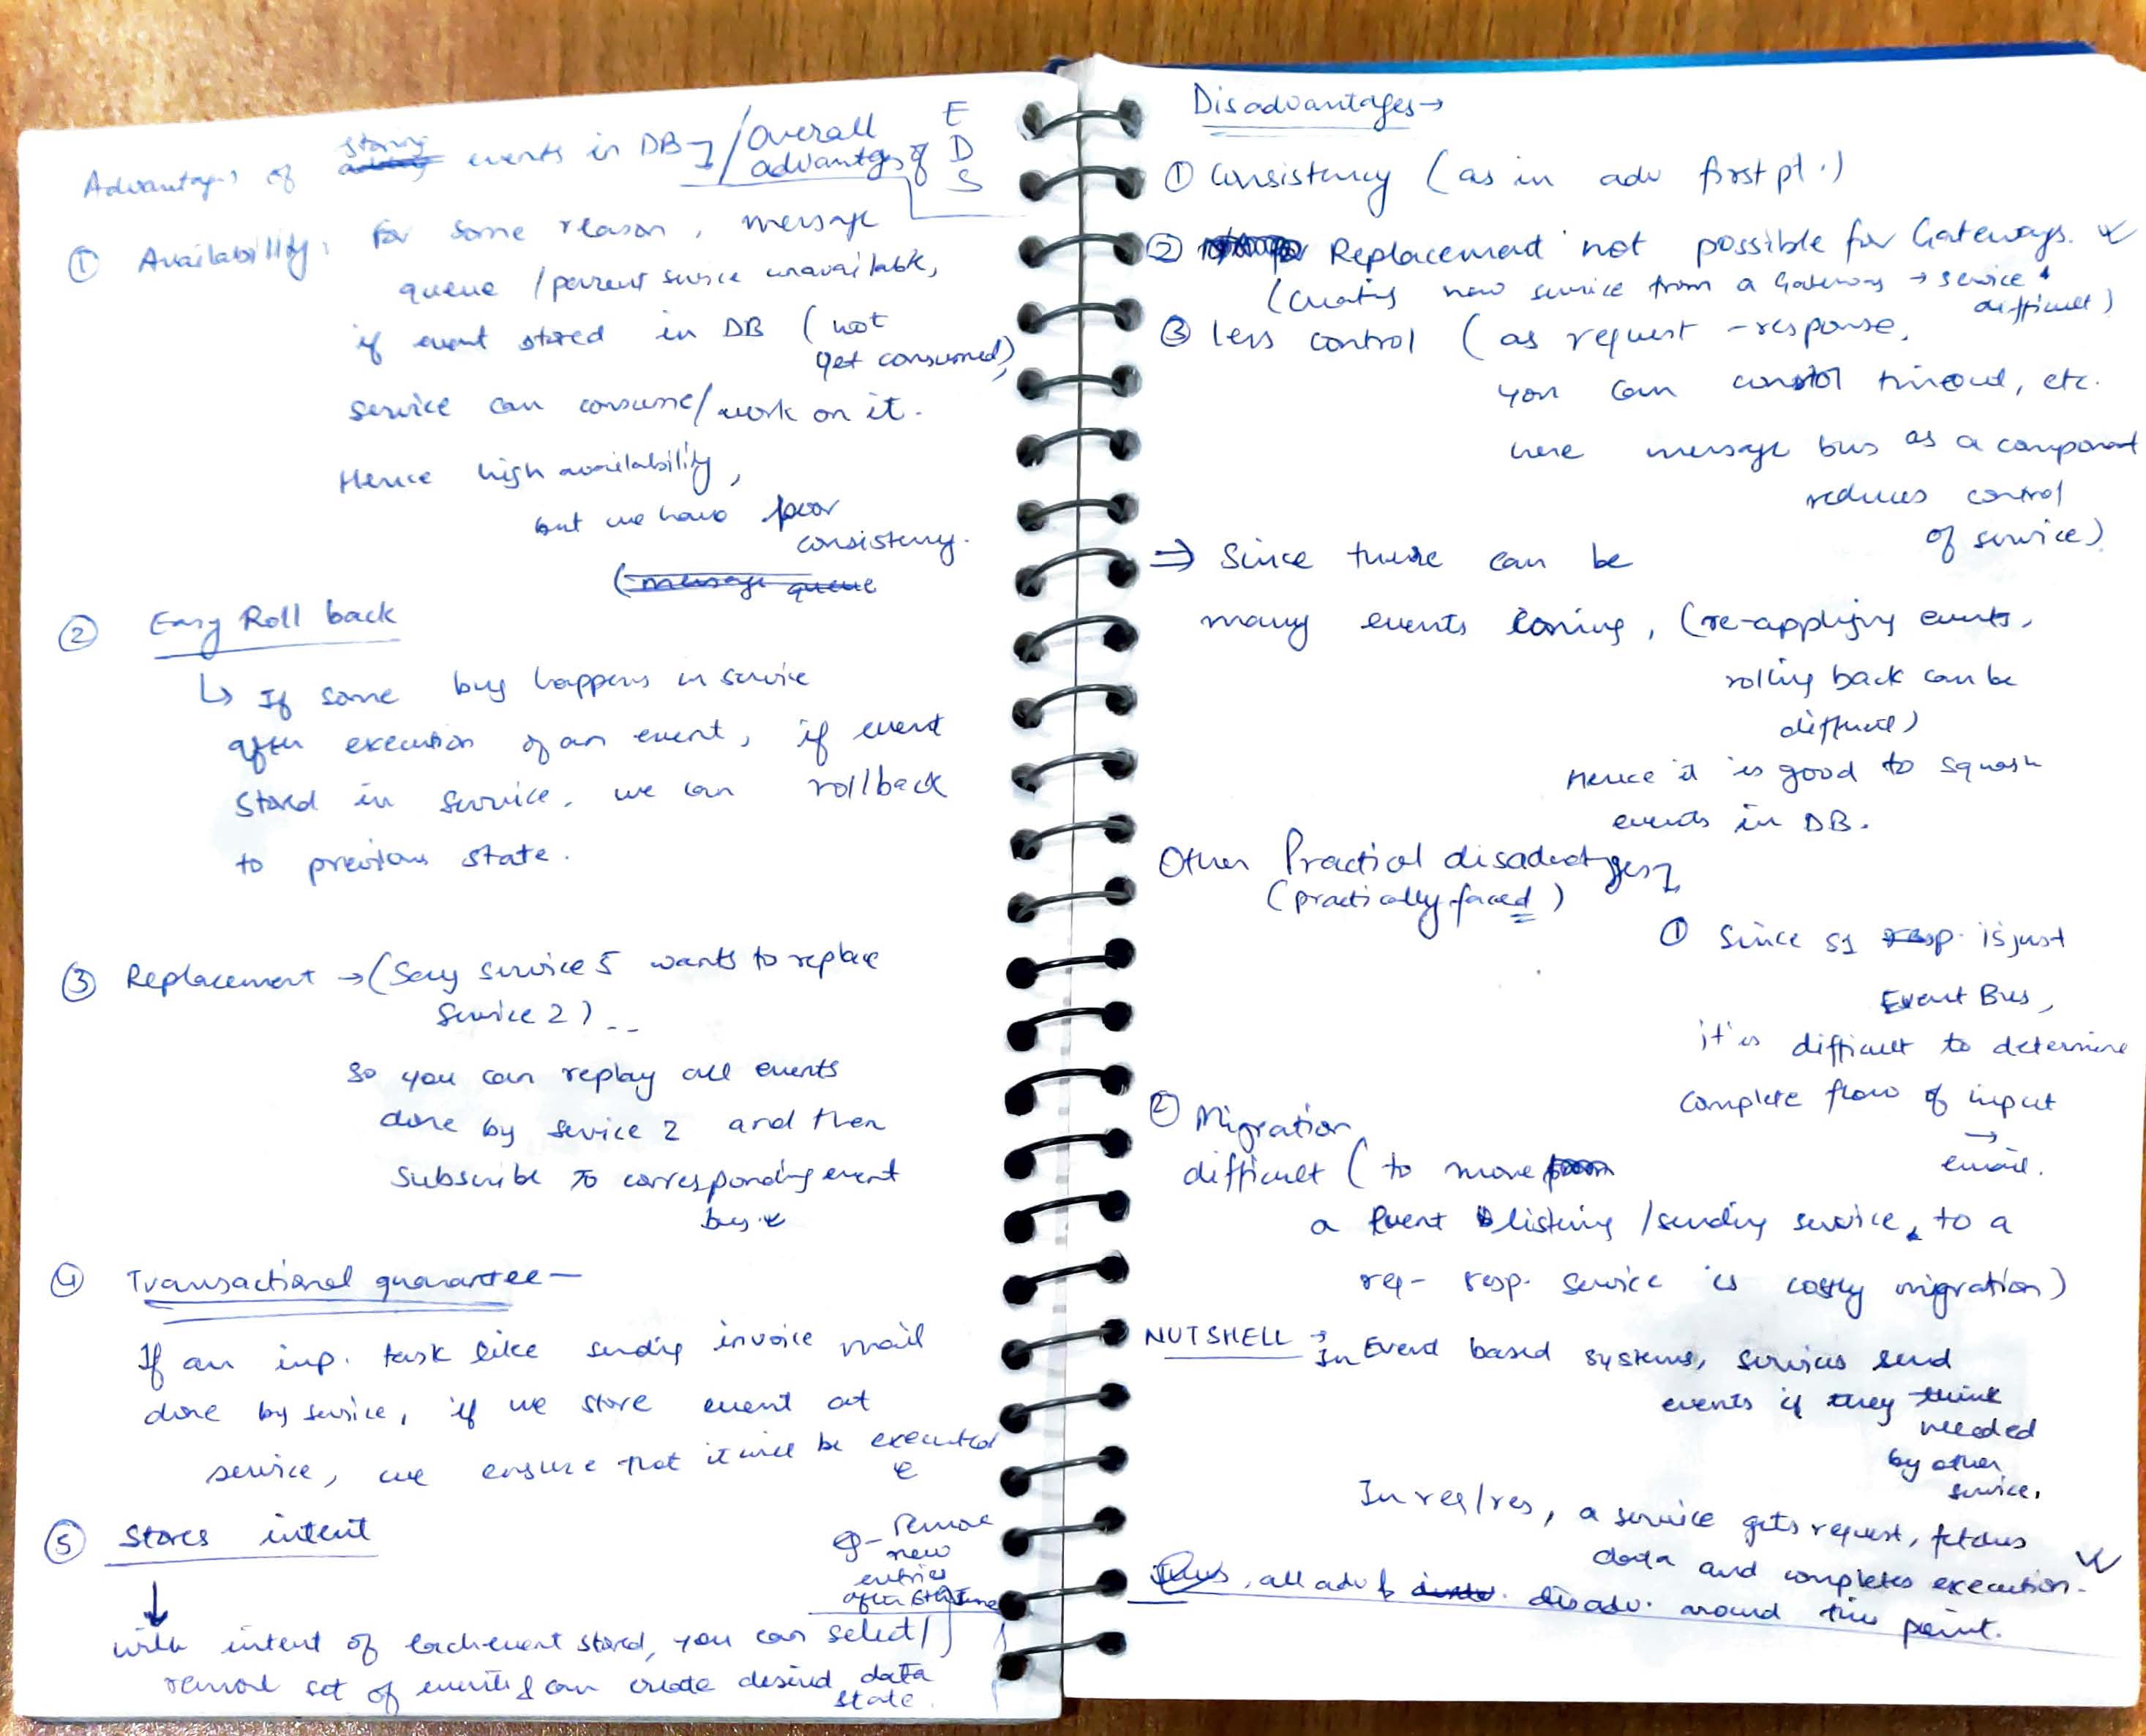 Advantages of storing events in DB / Overall advantges of EDS
① Availability: For some reason, message
queue / parent service unavailable,
if event stored in DB (not
get consumed),
service can consume/work on it.
Hence high availability,
but we have poor
consistency.
(message queue
② Easy Roll back
↳ If some bug happens in service
after execution of an event, if event
stored in service, we can rollback
to previous state.
③ Replacement → (Say service 5 wants to replace
Service 2) --
so you can replay all events
done by service 2 and then
subscribe to corresponding event
bus.
④ Transactional guarantee —
If an imp. task like sendig invoice mail
done by service, if we store event at
service, we ensure that it will be executed
⑤ Stores intent
eg- remove
new
entries
after 6th June
↓
with intent of each event stored, you can select/
remove set of events & can create desired data
state.
Disadvantages →
① Consistency (as in adv first pt.)
② Replacement not possible for Gateways.
(creating new service from a Gateway → service
difficult)
③ Less control (as request - response,
you can control timeout, etc.
here message bus as a component
reduces control
of service)
⇒ Since there can be
many events coming, (re-applying events,
rolling back can be
difficult)
Hence it is good to squash
events in DB.
Other Practical disadvatges
(practically faced)
① Since S1 resp. is just
Event Bus,
it is difficult to determine
complete flow of input
→
email.
② Migration
difficult (to move from
a Event listing / sending service, to a
req- resp. service is costly migration)
NUTSHELL → In Event based systems, services send
events if they think
needed
by other
service.
In req/res, a service gets request, fetches
data and completes execution.
Thus, all adv & disadv. around this point.